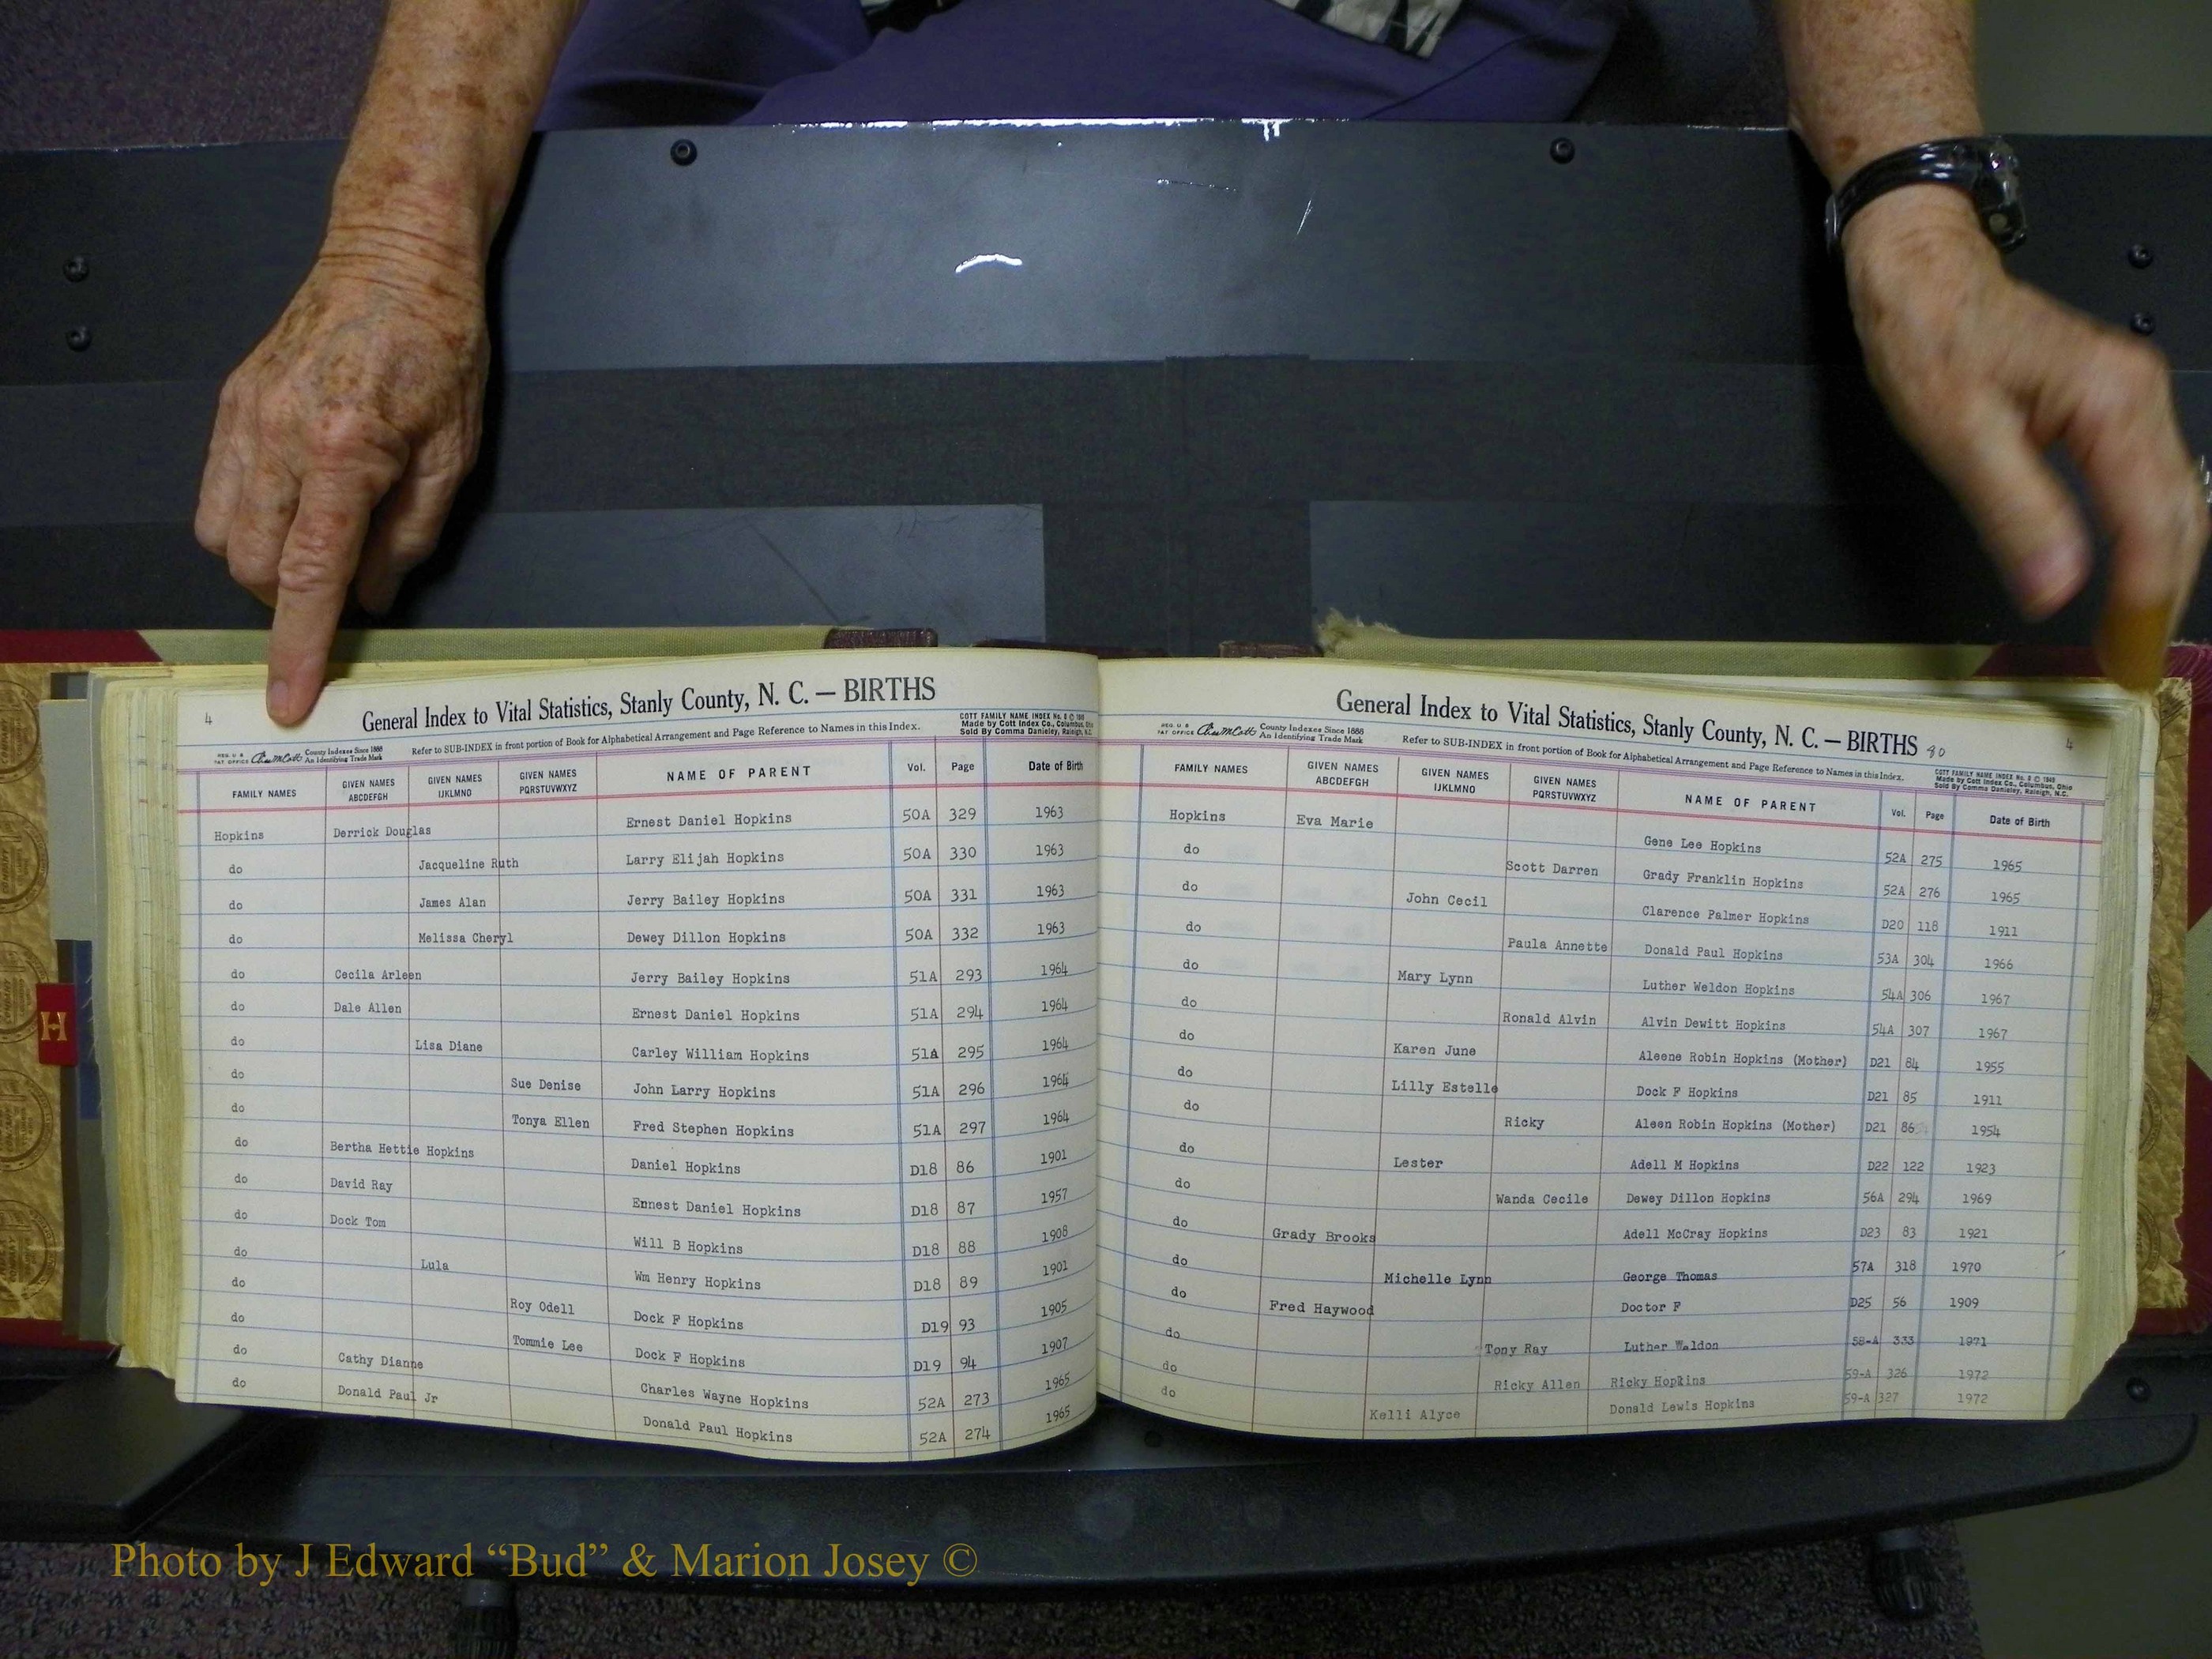 4
General Index to Vital Statistics, Stanly County, N. C. — BIRTHS
REG. U S PAT OFFICE County Indexes Since 1888 An Identifying Trade Mark
Refer to SUB-INDEX in front portion of Book for Alphabetical Arrangement and Page Reference to Names in this Index.
Made by Cott Index Co., Columbus, Ohio
Sold By Comma Danieley, Raleigh, N.C.
FAMILY NAMES GIVEN NAMES ABCDEFGH GIVEN NAMES IJKLMNO GIVEN NAMES PQRSTUVWXYZ NAME OF PARENT Vol. Page Date of Birth
Hopkins Derrick Douglas Ernest Daniel Hopkins 50A 329 1963
do Jacqueline Ruth Larry Elijah Hopkins 50A 330 1963
do James Alan Jerry Bailey Hopkins 50A 331 1963
do Melissa Cheryl Dewey Dillon Hopkins 50A 332 1963
do Cecila Arleen Jerry Bailey Hopkins 51A 293 1964
do Dale Allen Ernest Daniel Hopkins 51A 294 1964
do Lisa Diane Carley William Hopkins 51A 295 1964
do Sue Denise John Larry Hopkins 51A 296 1964
do Tonya Ellen Fred Stephen Hopkins 51A 297 1964
do Bertha Hettie Hopkins Daniel Hopkins D18 86 1901
do David Ray Ennest Daniel Hopkins D18 87 1957
do Dock Tom Will B Hopkins D18 88 1908
do Lula Wm Henry Hopkins D18 89 1901
do Roy Odell Dock F Hopkins D19 93 1905
do Tommie Lee Dock F Hopkins D19 94 1907
do Cathy Dianne Charles Wayne Hopkins 52A 273 1965
do Donald Paul Jr Donald Paul Hopkins 52A 274 1965
General Index to Vital Statistics, Stanly County, N. C. — BIRTHS 4
REG. U S PAT OFFICE County Indexes Since 1888 An Identifying Trade Mark
Refer to SUB-INDEX in front portion of Book for Alphabetical Arrangement and Page Reference to Names in this Index.
Made by Cott Index Co., Columbus, Ohio
Sold By Comma Danieley, Raleigh, N.C.
FAMILY NAMES GIVEN NAMES ABCDEFGH GIVEN NAMES IJKLMNO GIVEN NAMES PQRSTUVWXYZ NAME OF PARENT Vol. Page Date of Birth
Hopkins Eva Marie Gene Lee Hopkins 52A 275 1965
do Scott Darren Grady Franklin Hopkins 52A 276 1965
do John Cecil Clarence Palmer Hopkins D20 118 1911
do Paula Annette Donald Paul Hopkins 53A 304 1966
do Mary Lynn Luther Weldon Hopkins 54A 306 1967
do Ronald Alvin Alvin Dewitt Hopkins 54A 307 1967
do Karen June Aleene Robin Hopkins (Mother) D21 84 1955
do Lilly Estelle Dock F Hopkins D21 85 1911
do Ricky Aleen Robin Hopkins (Mother) D21 86 1954
do Lester Adell M Hopkins D22 122 1923
do Wanda Cecile Dewey Dillon Hopkins 56A 294 1969
do Grady Brooks Adell McCray Hopkins D23 83 1921
do Michelle Lynn George Thomas 57A 318 1970
do Fred Haywood Doctor F D25 56 1909
do Tony Ray Luther Weldon 58-A 333 1971
do Ricky Allen Ricky Hopkins 59-A 326 1972
do Kelli Alyce Donald Lewis Hopkins 59-A 327 1972
H
Photo by J Edward “Bud” & Marion Josey ©